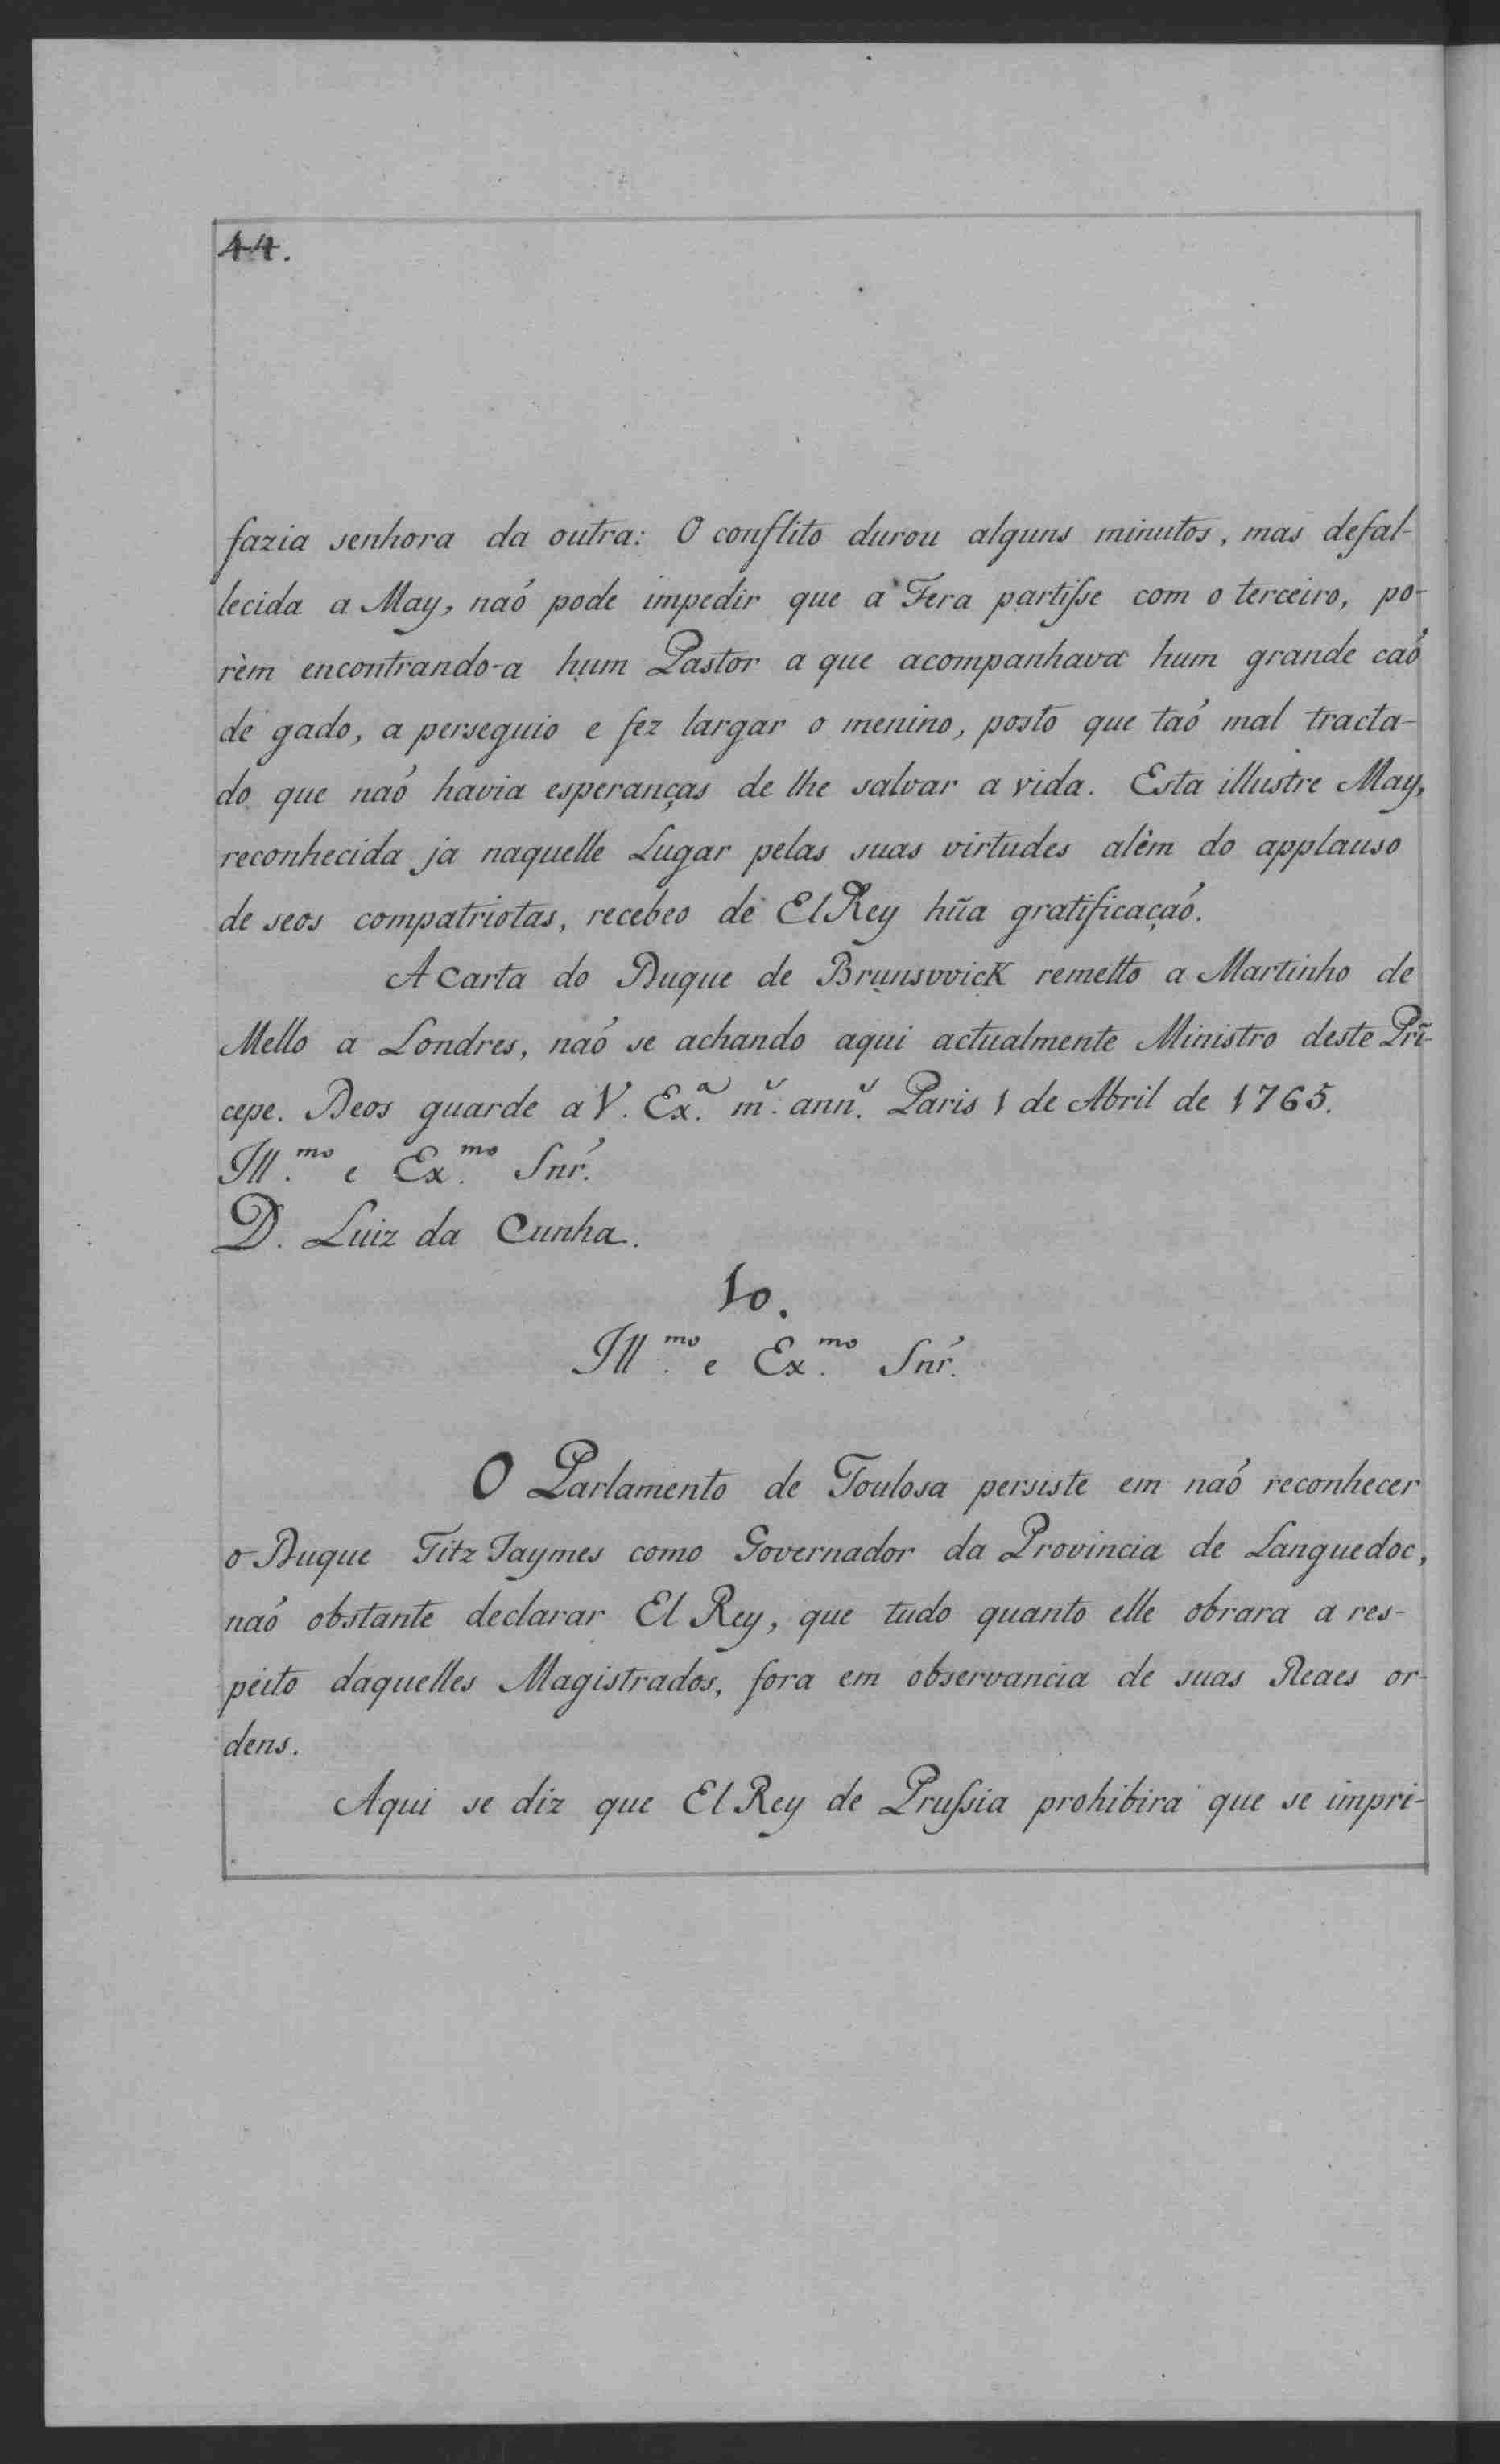 44.
fazia senhora da outra: O conflito durou alguns minutos, mas defal-
lecida a May, naó pode impedir que a Fera partiſse com o terceiro, po-
rèm encontrando-a hum Pastor a que acompanhava hum grande caó
de gado, a perseguio e fez largar o menino, posto que taó mal tracta-
do que naó havia esperanças de lhe salvar a vida. Esta illustre May,
reconhecida ja naquelle Lugar pelas suas virtudes alêm do applauso
de seos compatriotas, recebeo de El Rey hũa gratificaçaó.
A Carta do Duque de BrunsvvicK remetto a Martinho de
Mello a Londres, naó se achando aqui actualmente Ministro deste Prĩ-
cepe. Deos guarde a V. Ex.ª m.ˢ ann.ˢ Paris 1 de Abril de 1765.
Ill.mo e Ex.mo Snr.
D. Luiz da Cunha.
10.
Ill.mo e Ex.mo Snr.
O Parlamento de Toulosa persiste em naó reconhecer
o Duque Fitz Jaymes como Governador da Provincia de Languedoc,
naó obstante declarar El Rey, que tudo quanto elle obrara a res-
peito daquelles Magistrados, fora em observancia de suas Reaes or-
dens.
Aqui se diz que El Rey de Pruſsia prohibira que se impri-